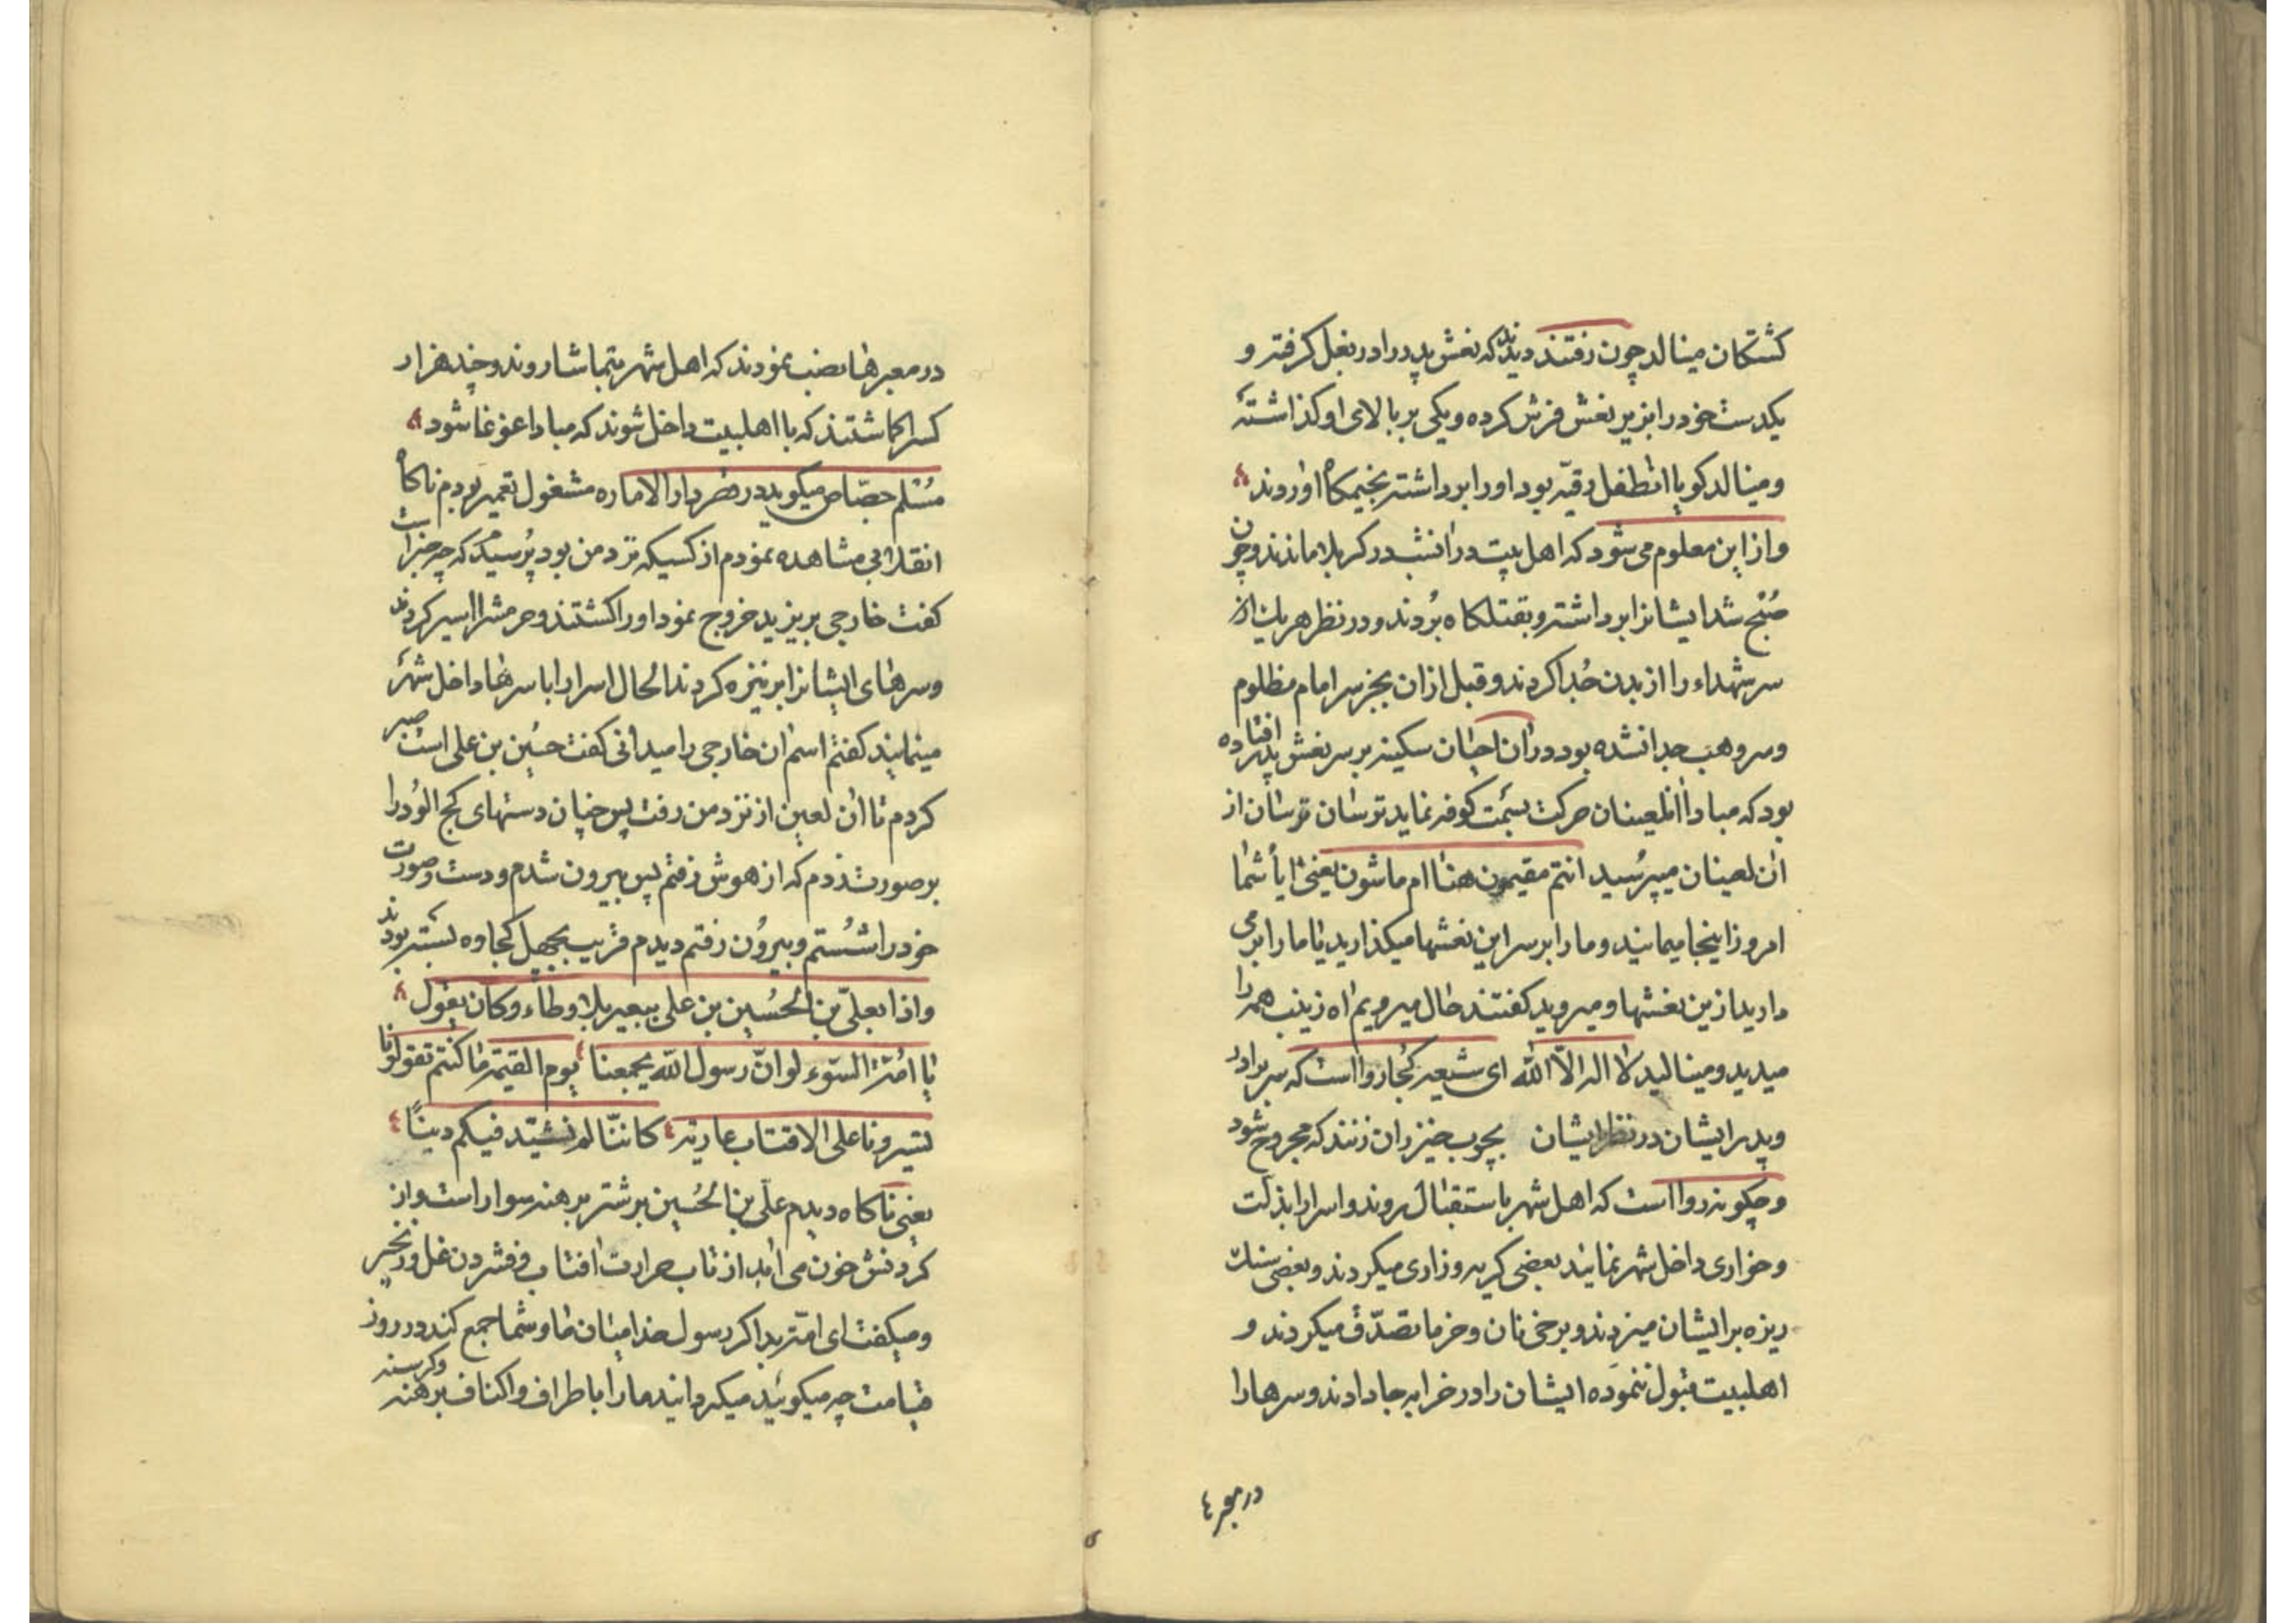 کشتکان مینالد چون رفتند دیدند که نعش پدر را در بغل کرفته و
یکدست خود را بزیر نعش فرش کرده و یکی بر بالای او کذاشته
و مینالد کویا انطفل رقیّه بود او را برداشته بخیمکاه اوردند
و از این معلوم می شود که اهل بیت در انشب در کربلا ماندند و چون
صُبح شد ایشانرا برداشته و بقتلکاه بُردند و در نظر هر یک از
سر شهداء را از بدن جُدا کردند و قبل از ان بجز سر امام مظلوم
و سر وهب جدا نشده بود در ان احیان سکینه بر سر نعش پدر افتاده
بود که مبادا انلعینان حرکت بسمت کوفه نماید ترسان ترسان از
ان لعینان میپرُسید انتم مقیمون هنا ام ماشون یعنی ایا شما
امروز اینجا میمانید و ما را بر سر این نعشها میکذارید یا ما را بر می
دارید ازین نعشها و میروید کفتند حال میرویم اه زینب همه را
میدید و مینالید لا اله الّا الله ای شیعه کجا روا است که سر برادر
و پدر ایشان در نظر ایشان بچوب خیزران زنند که مجروح شود
و چکونه روا است که اهل شهر باستقبال روند و اسرا را بذلت
و خواری داخل شهر نمایند بعضی کریه و زاری میکردند و بعضی سنک
ریزه بر ایشان میزدند و برخی نان و خرما تصدّق میکردند و
اهلبیت قبول ننموده ایشان را در خرابه جا دادند و سرها را
در معبر
در معبرها نصب نمودند که اهل شهر بتماشا روند و چند هزار
کس را کماشتند که با اهلبیت داخل شوند که مبادا غوغا شود
مُسْلم جصّاص میکوید در دار الاماره مشغول تعمیر بودم ناکاه
انقلابی مشاهده نمودم از کسیکه نزد من بود پُرسیدم که چه خبر است
کفت خارجی بر یزید خروج نمود او را کشتند و حرمش را اسیر کردند
و سرهای ایشانرا بر نیزه کردند الحال اسرا را با سرها داخل شهر
مینمایند کفتم اسم ان خارجی را میدانی کفت حسُین بن علی است صبر
کردم تا ان لعین از نزد من رفت پس چنان دستهای کج الوُد را
بر صورت زدم که از هوش رفتم پس بیرون شدم و دست و صورت
خود را شُستم و بیروُن رفتم دیدم قریب بچهل کجاوه بسته بودند
و اذا بعلیّ بن الحُسین بن علی ببعیر بلا وطاء و کان یقول
یا امّة السّوء لو انّ رسول الله یجمعنا یوم القیٰمة ما کنتم تقولونا
تسیرونا علی الاقتاب عاریة کاننّا لم نشیّد فیکم دینًا
یعنی ناکاه دیدم علی بن الحُسین بر شتر برهنه سوار است و از
کردنش خون می اید از تاب حرارت افتاب و فشردن غل و زنجیر
و میکفت ای امّت بد اکر رسول خدا میان ما و شما جمع کند در روز
قیامت چه میکوئید میکردانید ما را باطراف و اکناف برهنه و کرسنه